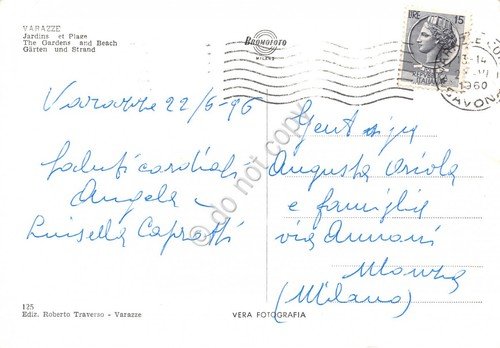 VARAZZE
Jardins et Plage
The Gardens and Beach
Gärten und Strand
BROMOFOTO
MILANO
LIRE 15
13-14
1960
SAVONA
Varazze 22/6-96
Saluti cordiali
Angela -
Luisella Caprotti
Gent sig
Augusta Oriola
e famiglia
via Annoni
Monza
(Milano)
do not copy
125
Ediz. Roberto Traverso - Varazze
VERA FOTOGRAFIA